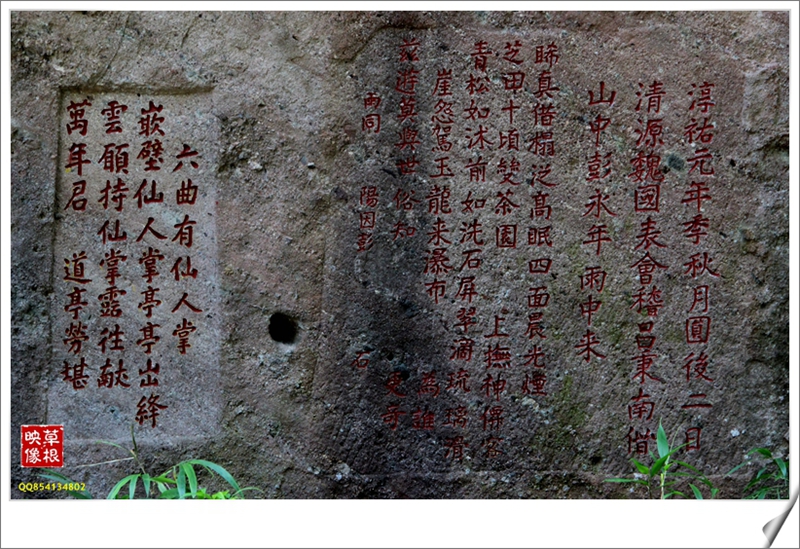 淳祐元年季秋月圓後二日
清源魏國表會稽昌秉南偕
山中彭永年雨中来
晞真借榻泛高眠四面晨光煙
芝甲十頃雙茶園 上撫神僊宮
青松如沐前如洗石屏翠滴琉璃滑
崖忽駕玉龍来瀑布 為誰
茲遊莫與世俗知
雨同 陽因彭 石
六曲有仙人掌
嵌壁仙人掌亭亭出絳
雲願持仙掌露往献
萬年君 道亭勞堪
草根
映像
QQ854134802